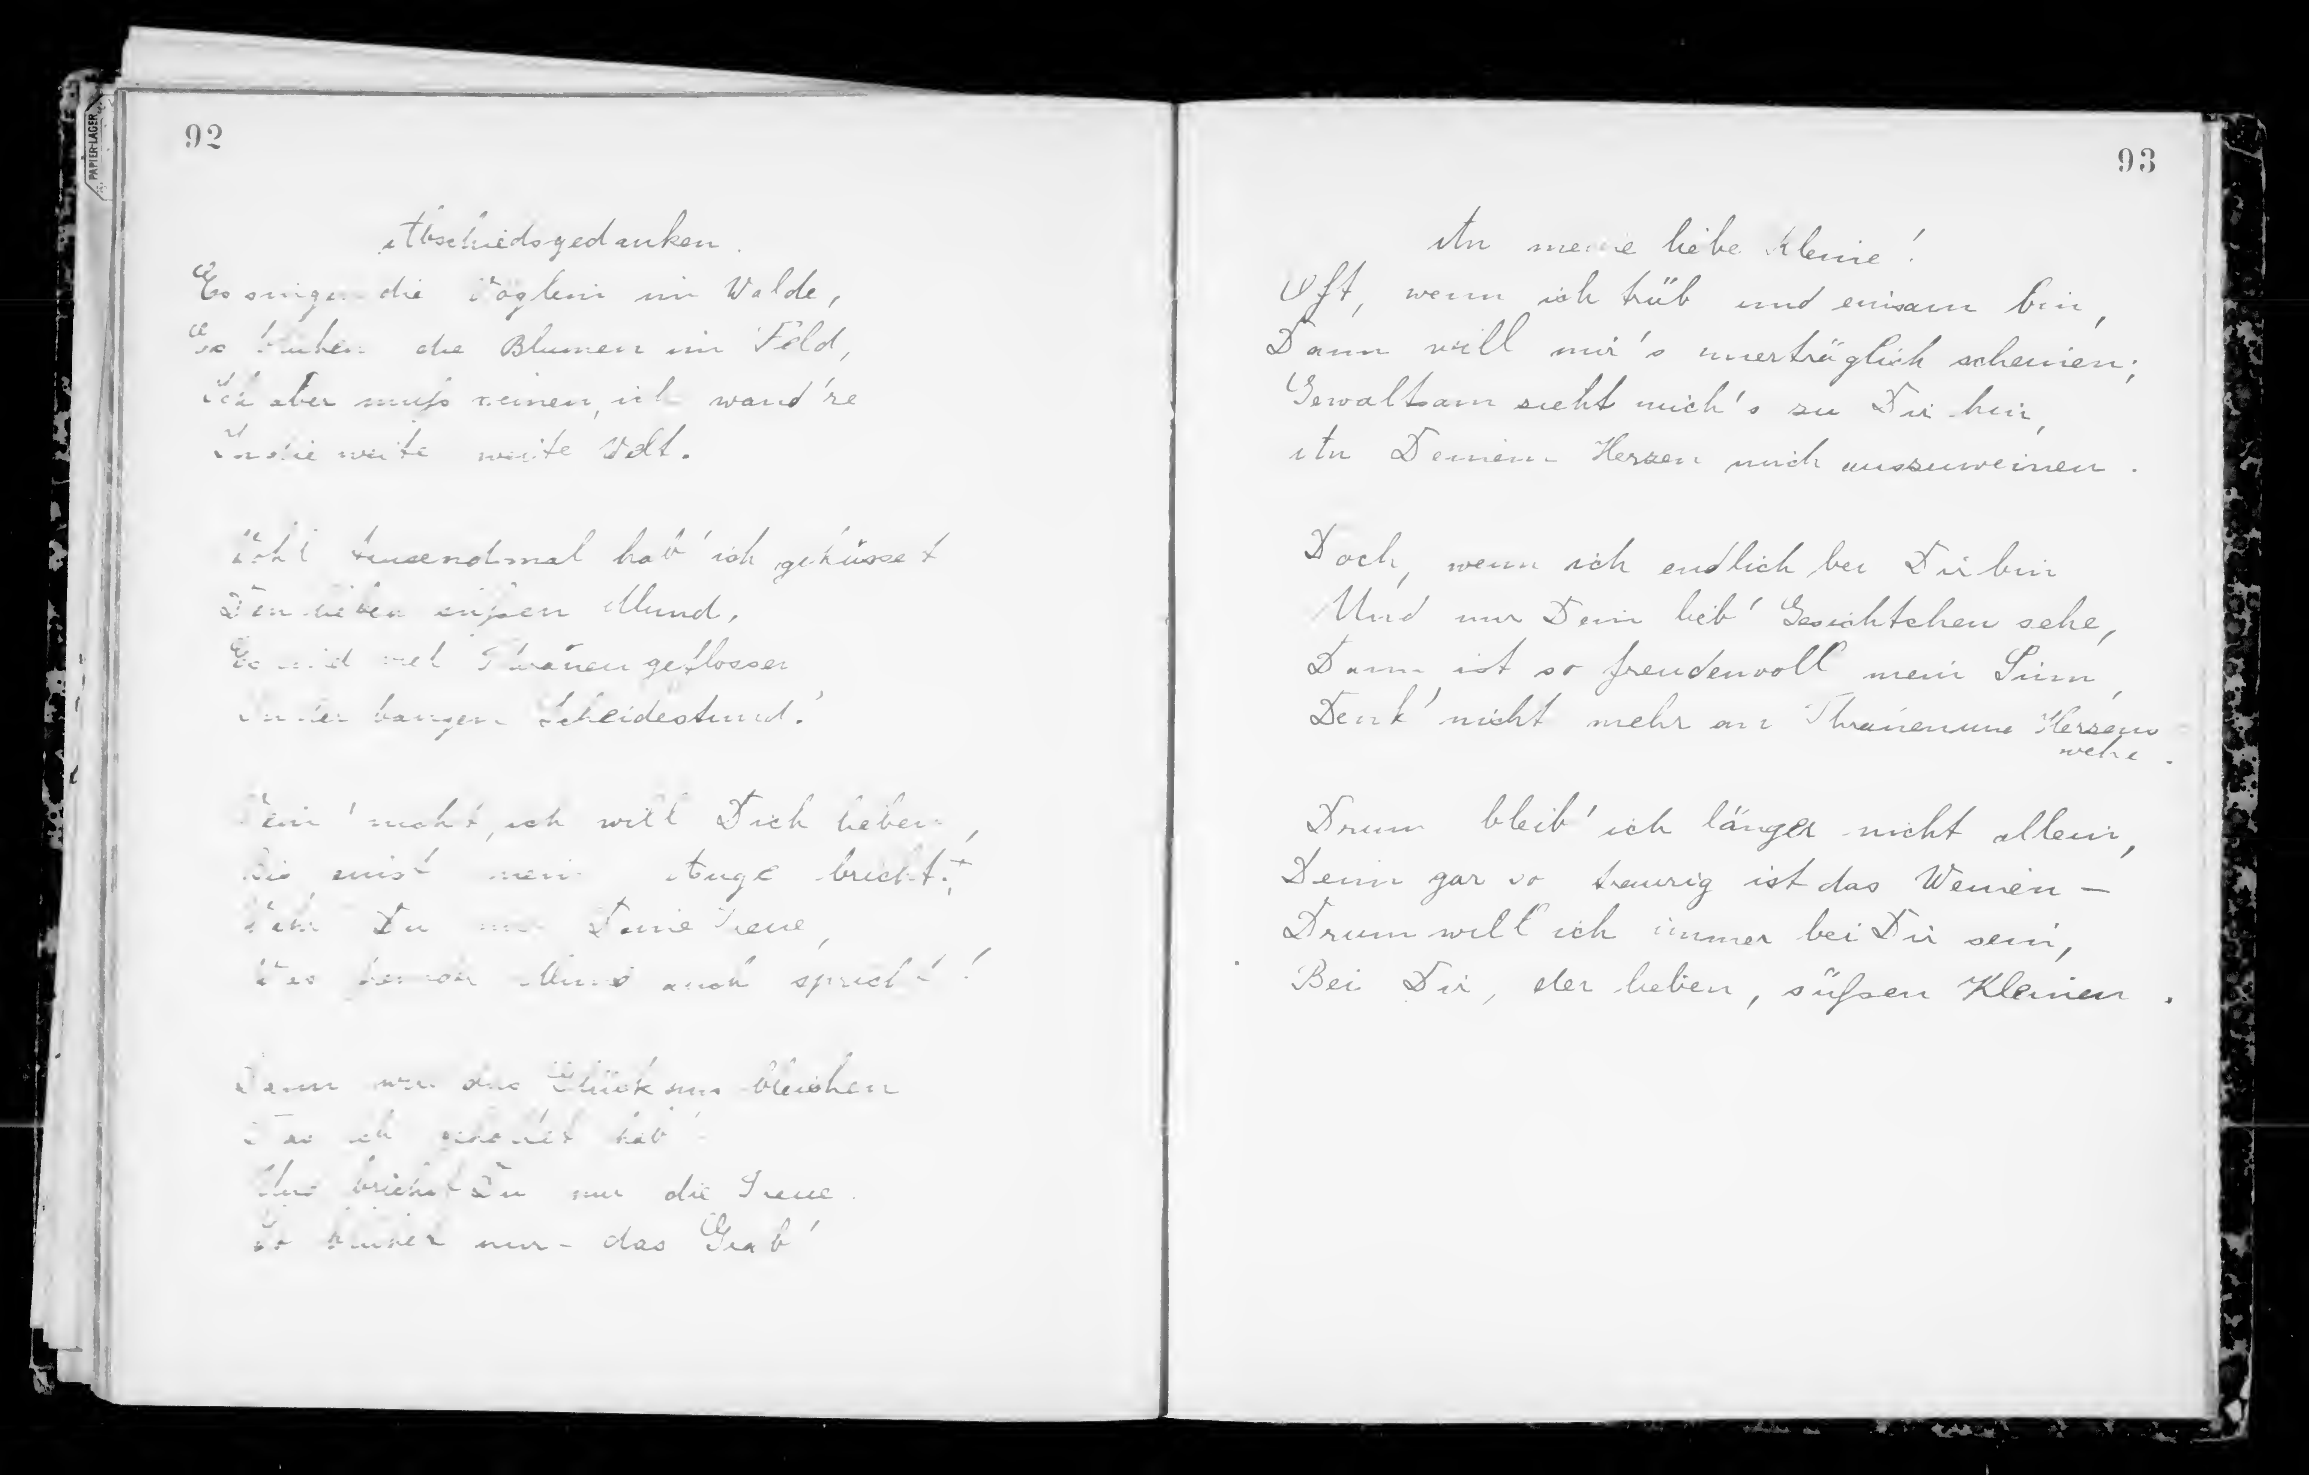 PAPIER-LAGER
92
Abschiedsgedanken.
Es singen die Vöglein im Walde,
Es blühen die Blumen im Feld,
Ich aber muß reisen, ich wand're
In die weite weite Welt.
Wohl tausendmal hab' ich geküsset
Den lieben süßen Mund,
Es sind viel Thränen geflossen
In der bangen Scheidestund'.
Wein' nicht, ich will Dich lieben,
Bis einst mein Auge bricht!
Du Deine Treue,
Mund auch spricht!
Dann wird das Glück uns bleichen
ich hab'
Und brichst Du nur die Treue
So nur - das Grab'
93
An meine liebe Kleine!
Oft, wenn ich trüb und einsam bin,
Dann will mir's unerträglich scheinen;
Gewaltsam zieht mich's zu Dir hin,
An Deinem Herzen mich auszuweinen.
Doch, wenn ich endlich bei Dir bin
Und nur Dein lieb' Gesichtchen sehe,
Dann ist so freudenvoll mein Sinn,
Denk' nicht mehr an Thränen und Herzens-
wehe.
Drum bleib' ich länger nicht allein,
Denn gar so traurig ist das Weinen –
Drum will ich immer bei Dir sein,
Bei Dir, der lieben, süßen Kleinen.